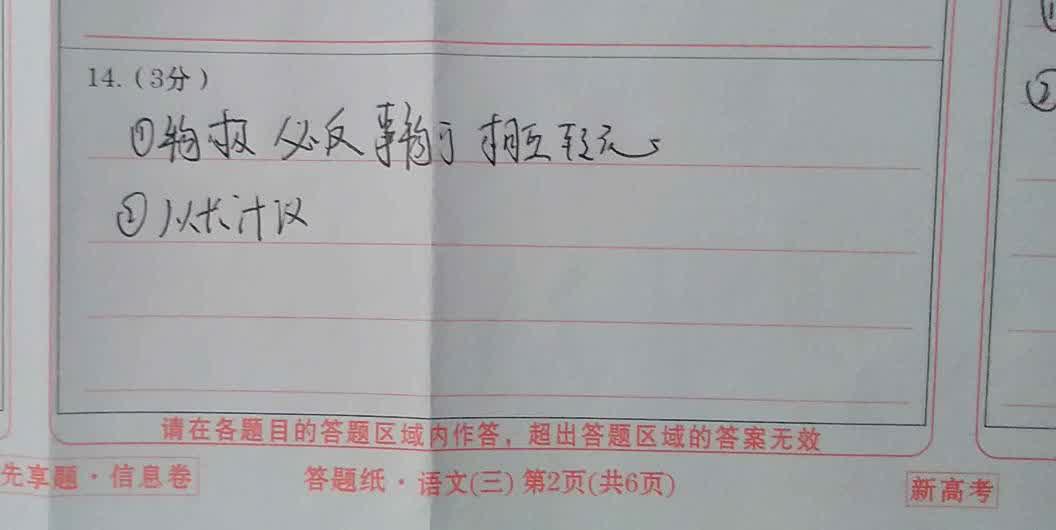 14.(3分)
①物极必反 事物于相互转元。
②从长计议
②
请在各题目的答题区域内作答，超出答题区域的答案无效
先享题·信息卷
答题纸·语文(三) 第2页(共6页)
新高考